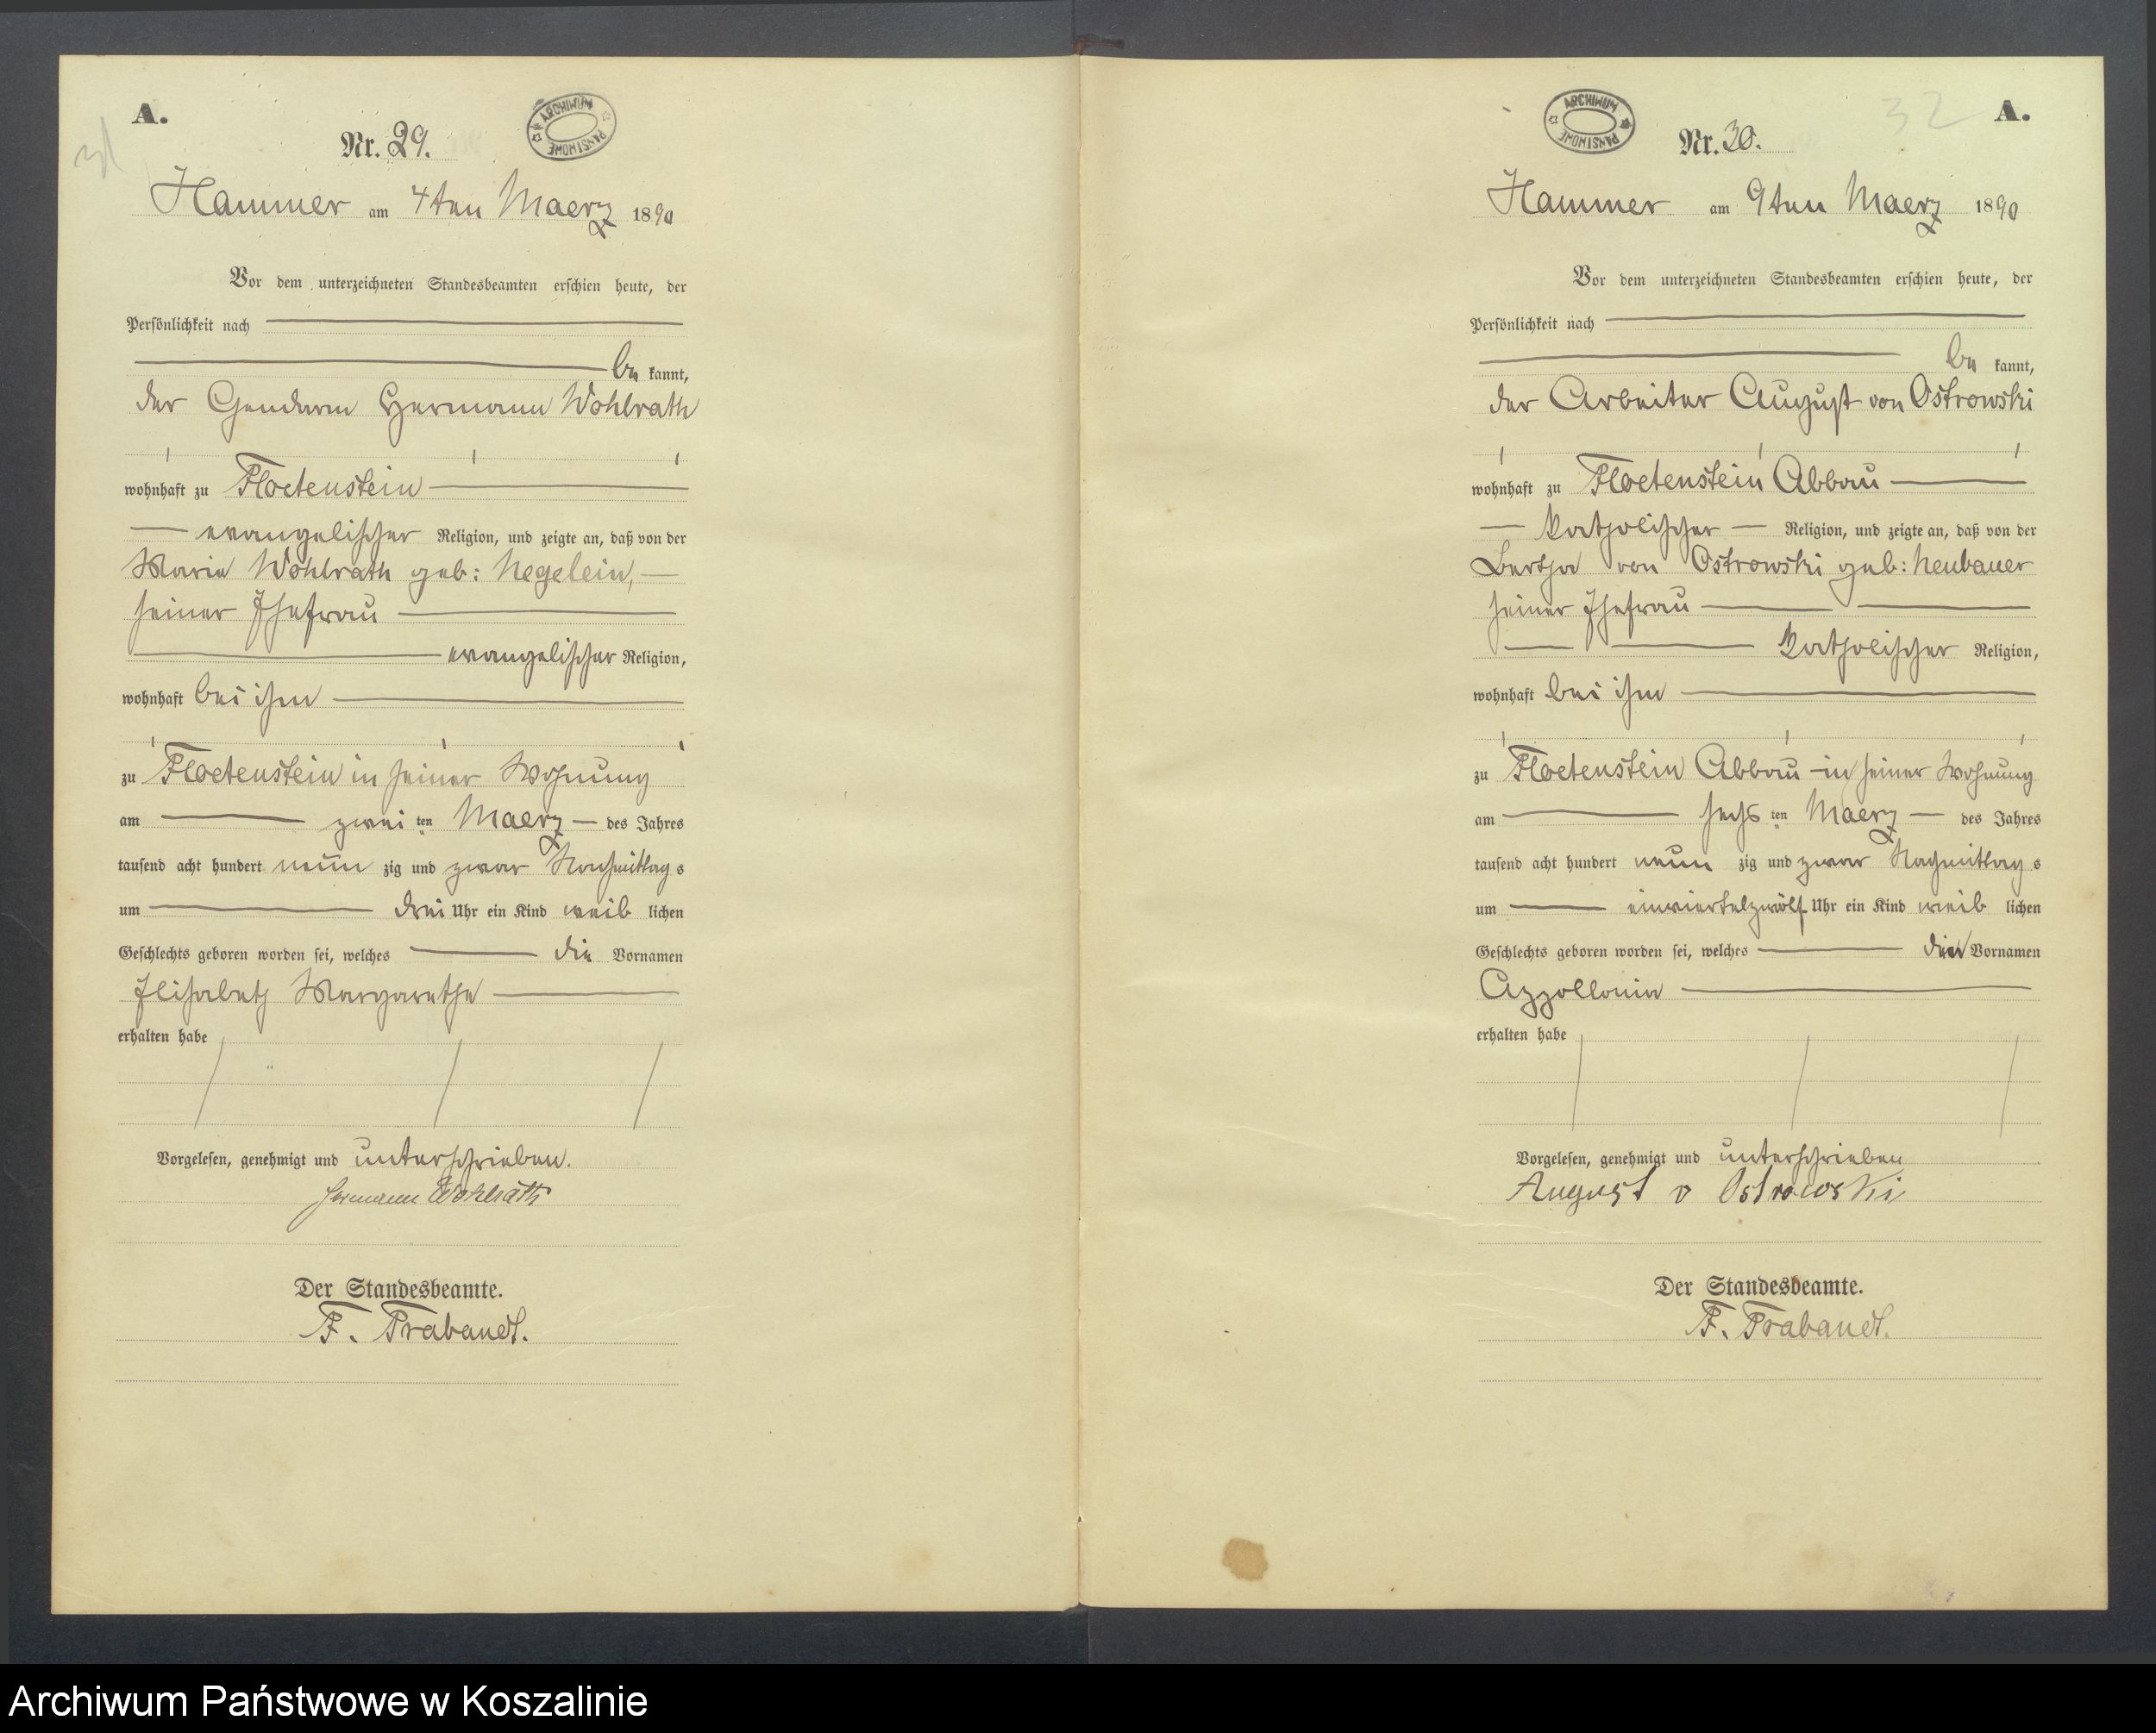 A.
Nr. 29.
ARCHIWUM PAŃSTWOWE
Hammer am 4ten Maerz 1890
Vor dem unterzeichneten Standesbeamten erschien heute, der
Persönlichkeit nach
be kannt,
der Gendarm Hermann Wohlrath
wohnhaft zu Floetenstein
evangelischer Religion, und zeigte an, daß von der
Marie Wohlrath geb: Negelein,
seiner Ehefrau
evangelischer Religion,
wohnhaft bei ihm
zu Floetenstein in seiner Wohnung
am zwei ten Maerz des Jahres
tausend acht hundert neun zig und zwar Nachmittag s
um drei Uhr ein Kind weib lichen
Geschlechts geboren worden sei, welches die Vornamen
Elisabeth Margarethe
erhalten habe
Vorgelesen, genehmigt und unterschrieben.
Hermann Wohlrath
Der Standesbeamte.
F. Trabandt.
32
A.
ARCHIWUM PAŃSTWOWE
Nr. 30.
Hammer am 9ten Maerz 1890
Vor dem unterzeichneten Standesbeamten erschien heute, der
Persönlichkeit nach
be kannt,
der Arbeiter August von Ostrowski
wohnhaft zu Floetenstein Abbau
katholischer Religion, und zeigte an, daß von der
Bertha von Ostrowski geb: Neubauer
seiner Ehefrau
katholischer Religion,
wohnhaft bei ihm
zu Floetenstein Abbau in seiner Wohnung
am sechs ten Maerz des Jahres
tausend acht hundert neun zig und zwar Nachmittag s
um einviertelzwölf Uhr ein Kind weib lichen
Geschlechts geboren worden sei, welches den Vornamen
Appollonia
erhalten habe
Vorgelesen, genehmigt und unterschrieben
August v Ostrowski
Der Standesbeamte.
F. Trabandt.
Archiwum Państwowe w Koszalinie